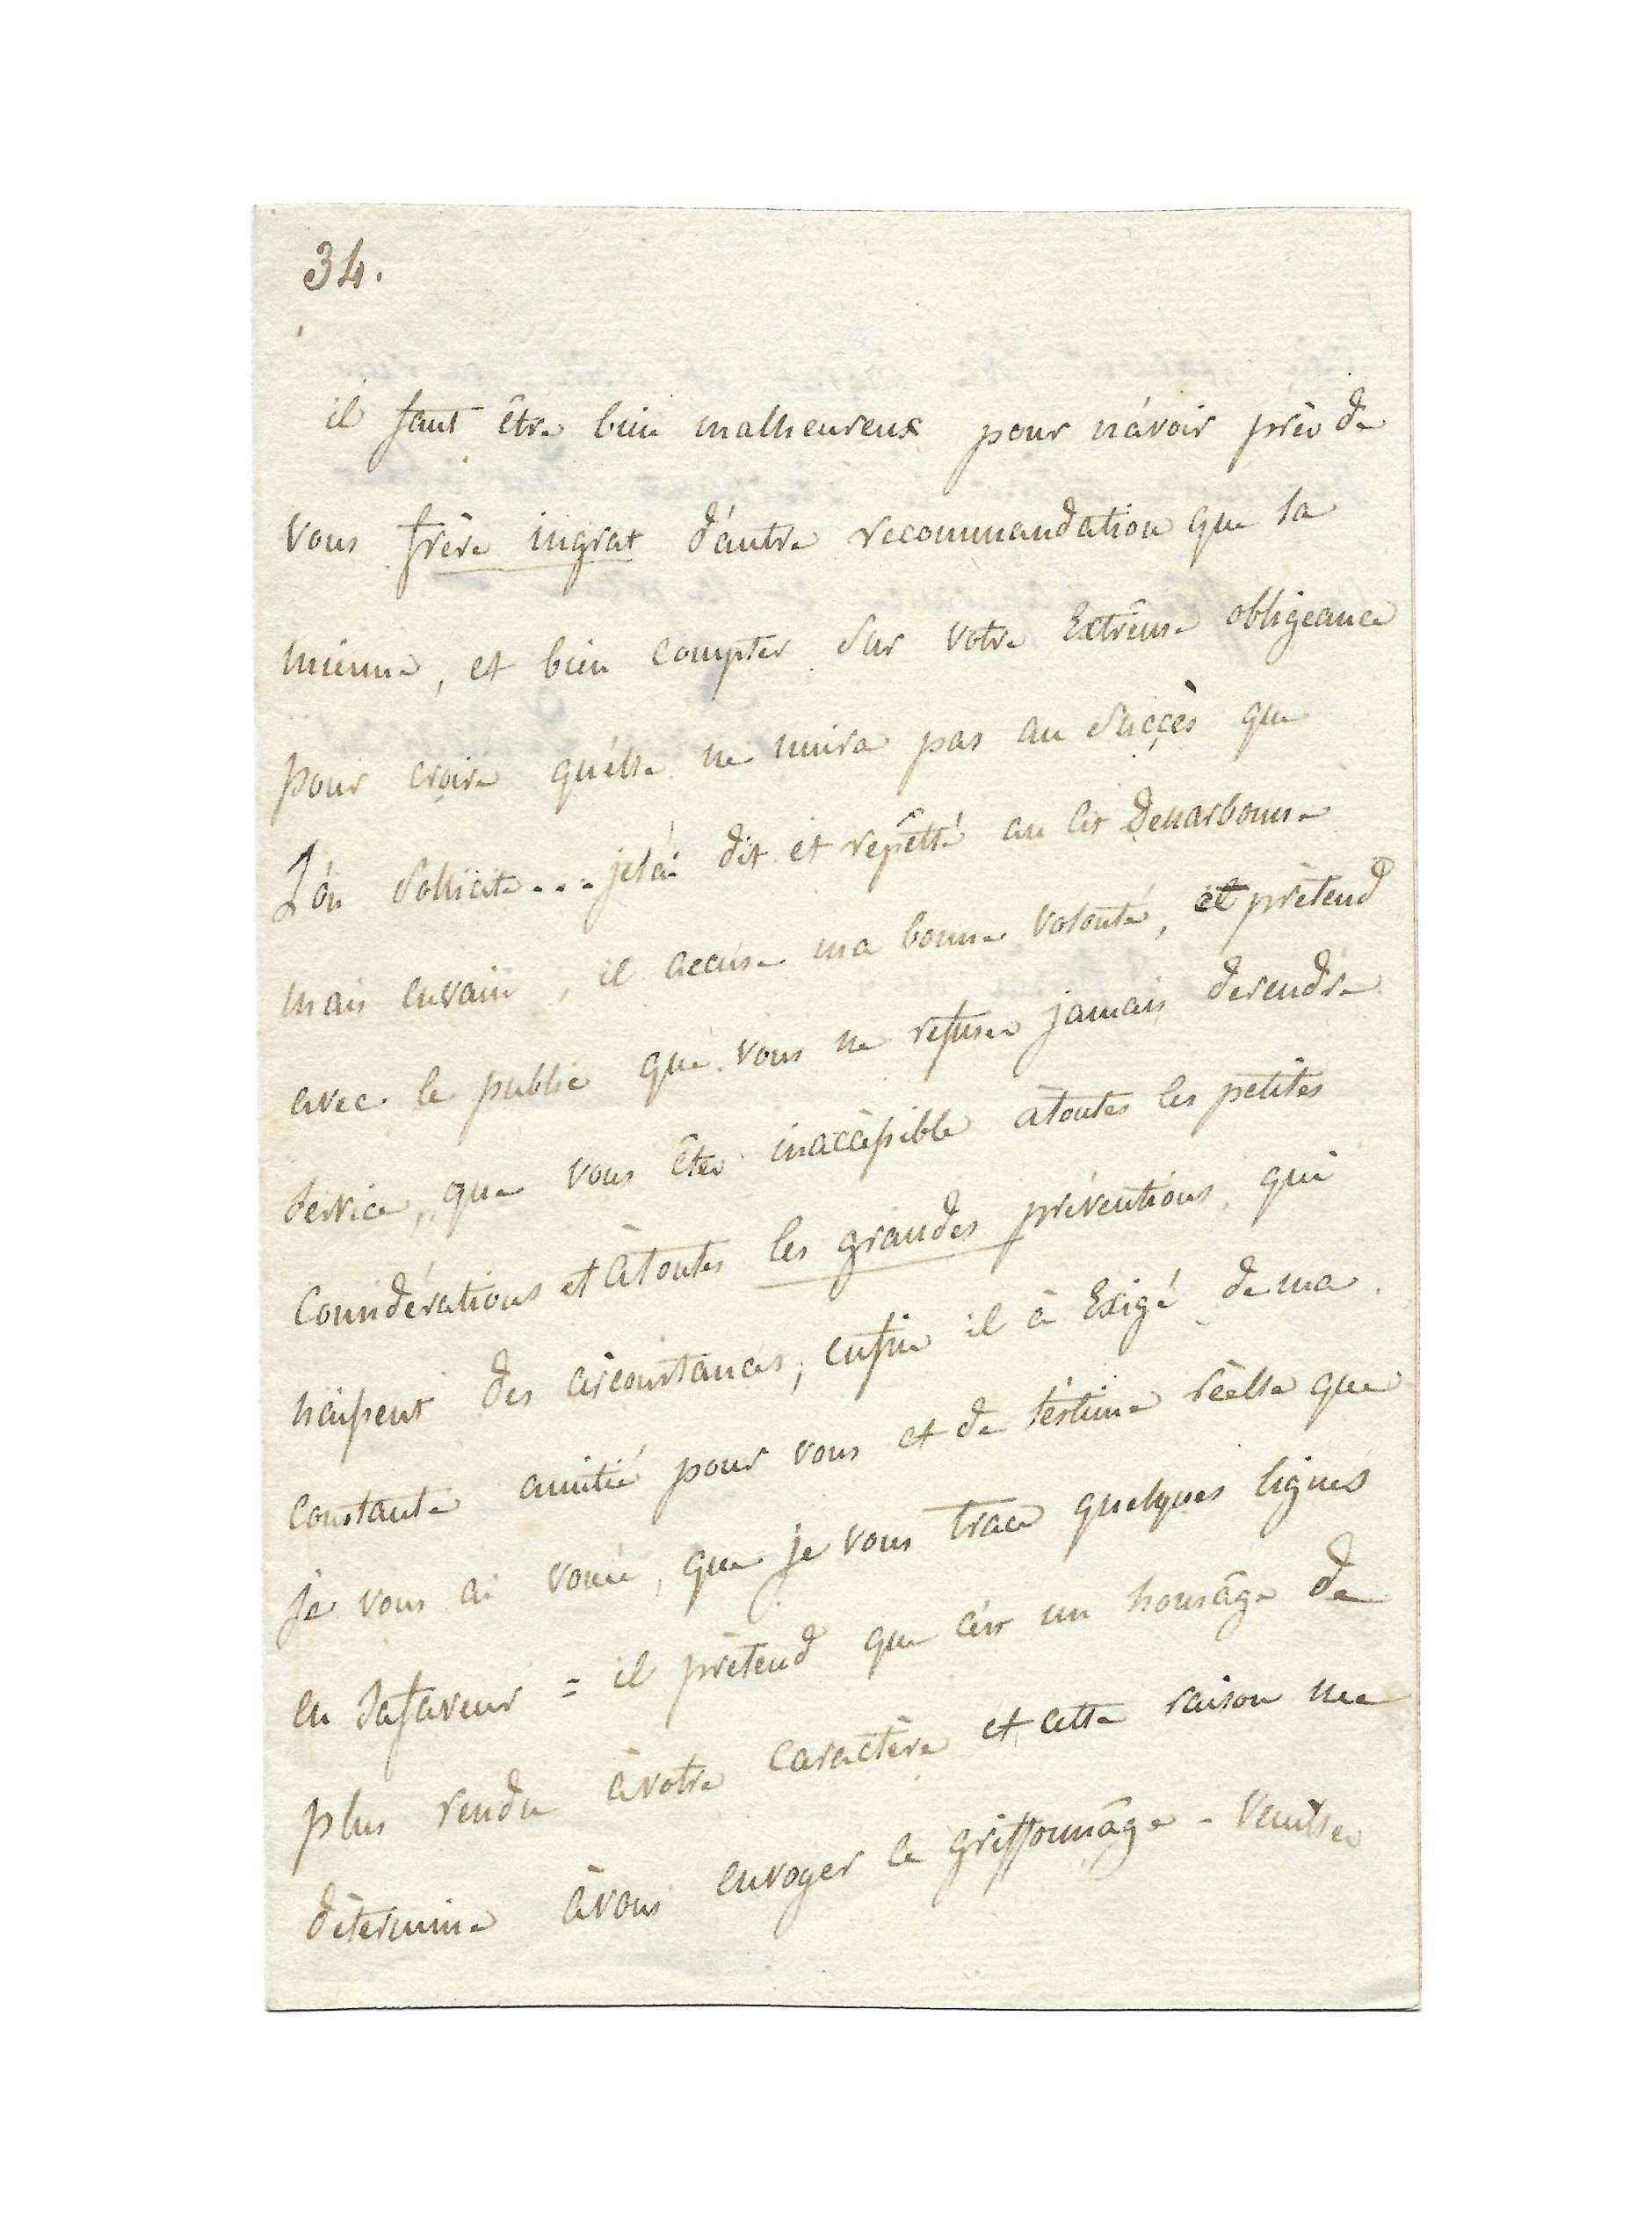 34.
il faut être bien malheureux pour n'avoir près de
vous frère ingrat d'autre recommandation que la
mienne, et bien compter sur votre Extrême obligeance
pour croire qu'elle ne nuira pas au succès que
L'ón sollicite... je l'ai dit et repêtté au cit Denarbonne
mais envain, il accuse ma bonne volonté, et prétend
avec le public que vous ne refusez jamais derendre
service, que vous êtes inaccessible àtoutes les petites
Considérations et àtoutes les grandes préventions, qui
naissent des circonstances, enfin il à Exigé de ma
constante amitié pour vous et de l'estime réelle que
je vous ai vouée, que je vous trace quelques lignes
en safaveur = il prétend que c'est un homâge de
plus rendu àvotre caractère et cette raison me
détermine àvous envoyer ce griffonnâge - Veuillez